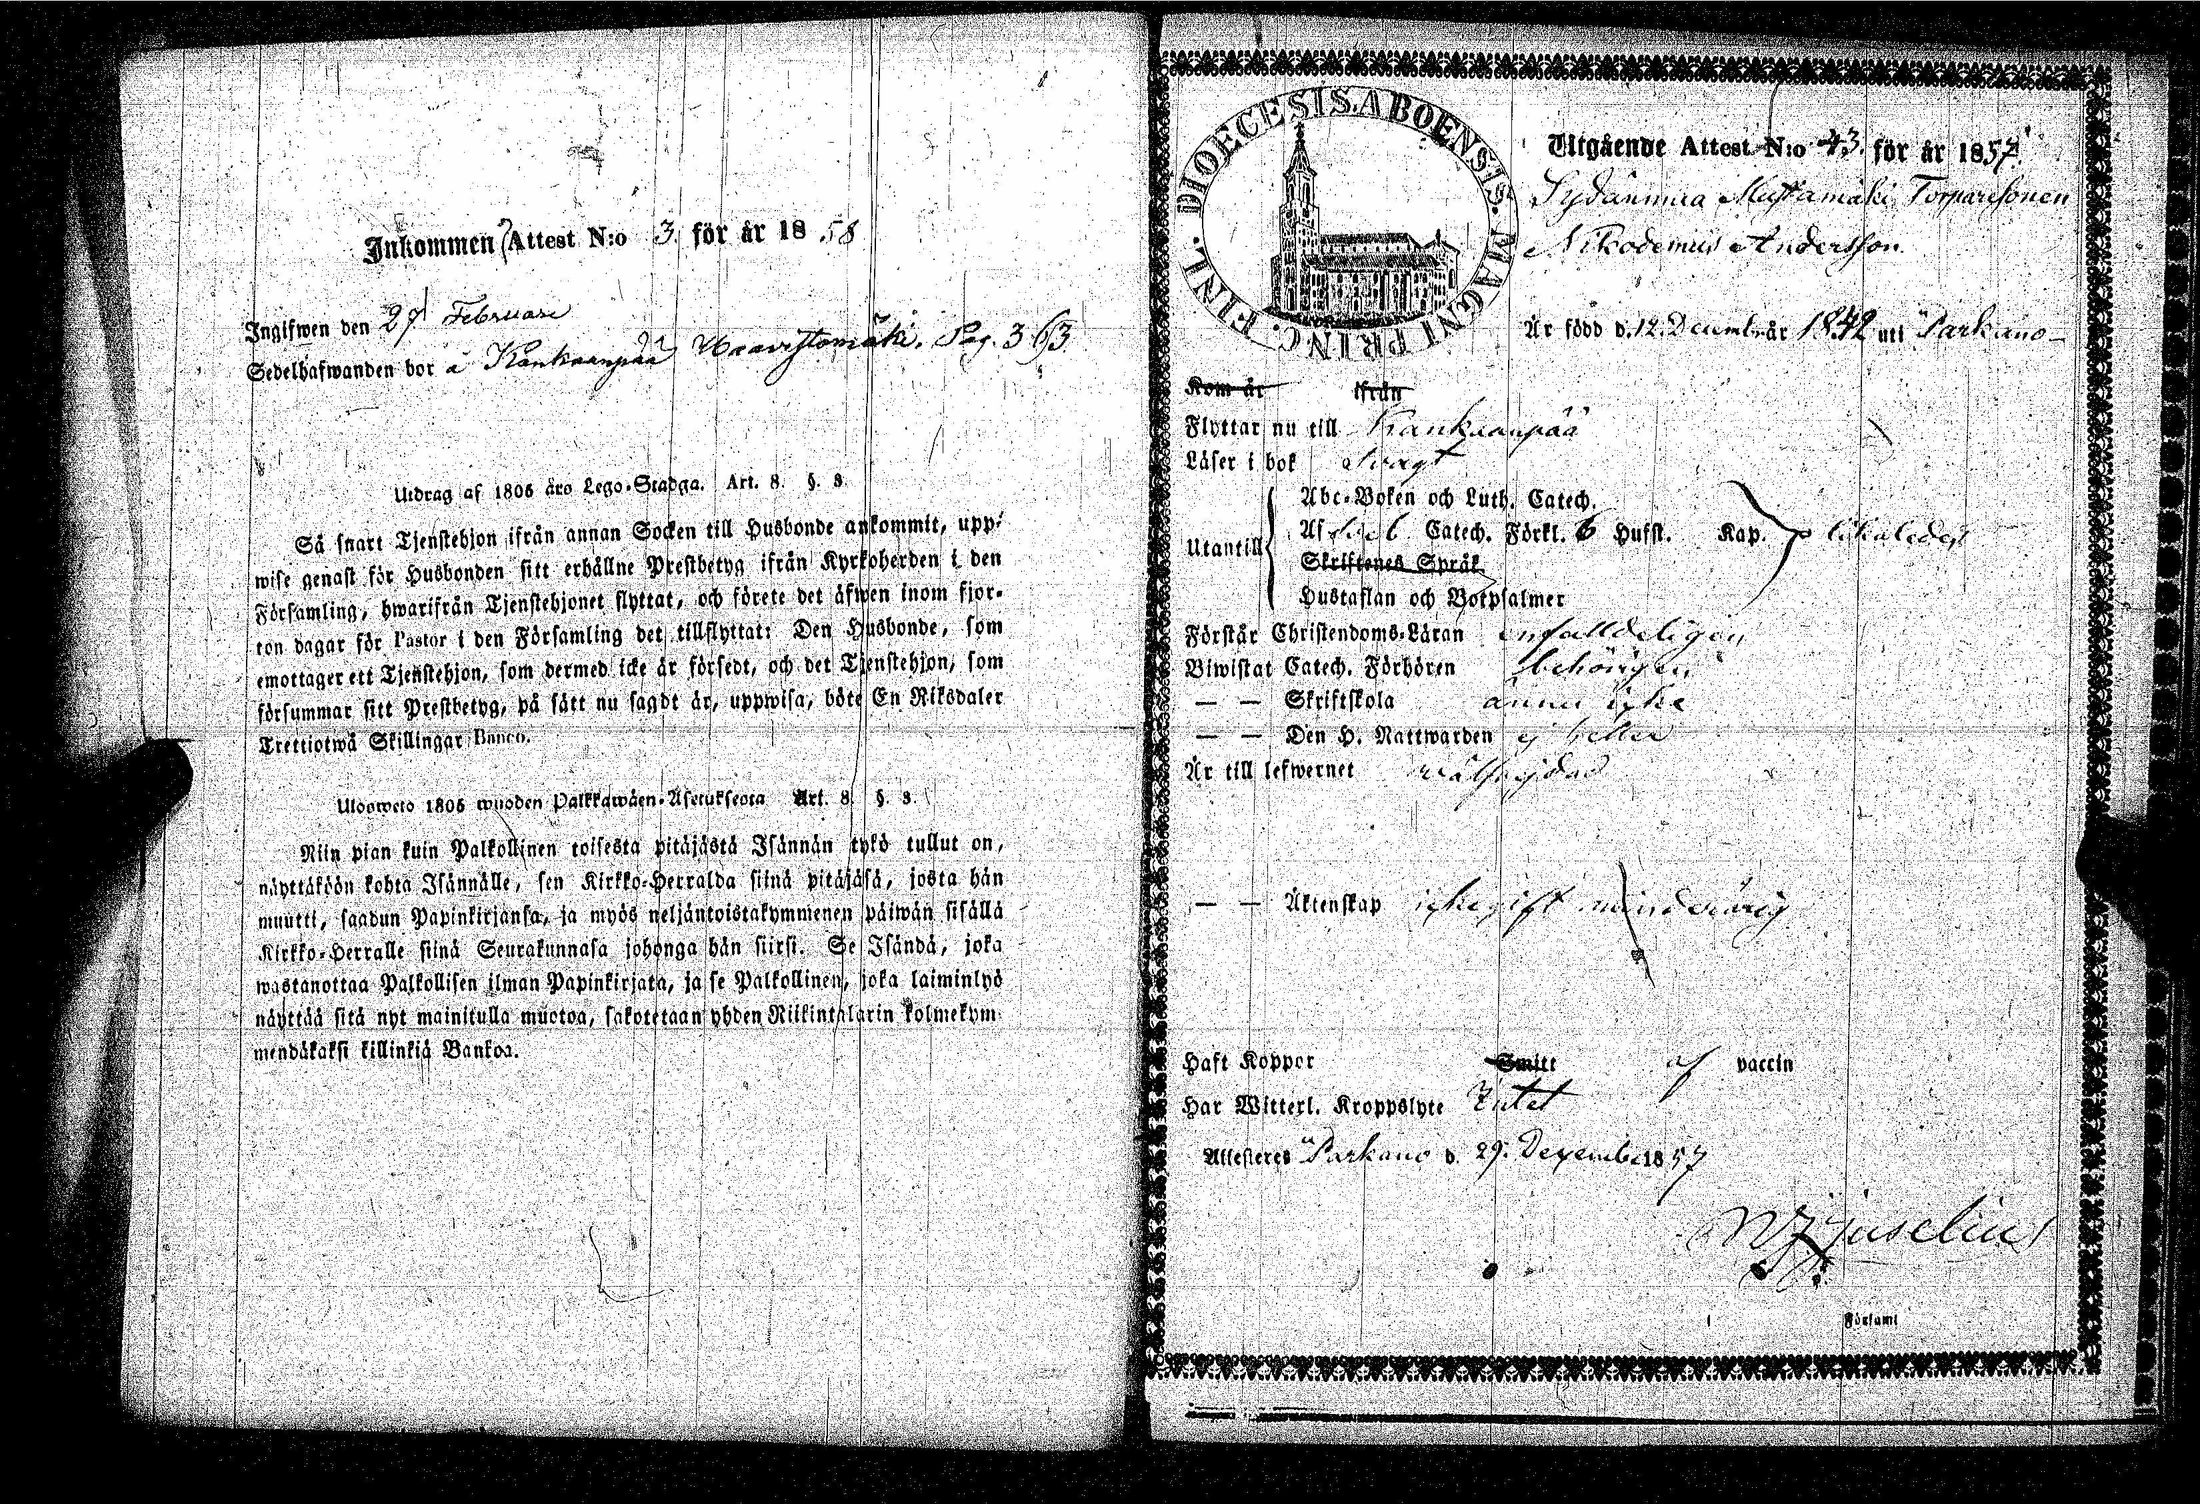 Inkommen Attest N:o 3. för år 1858
Ingifwen den 27 Februari
Sedelhafwanden bor å Kankaanpää Haavistomäki. Pag. 363
Utdrag af 1805 års Lego-Stadga. Art. 8. §. 3.
Så snart Tjenstehjon ifrån annan Socken till Husbonde ankommit, upp-
wise genast för Husbonden sitt erhållne Prestbetyg ifrån Kyrkoherden i den
Församling, hwarifrån Tjenstehjonet flyttat, och förete det äfwen inom fjor-
ton dagar för Pastor i den Församling det tillflyttat: Den Husbonde, som
emottager ett Tjenstehjon, som dermed icke är försedt, och det Tjenstehjon, som
försummar sitt Prestbetyg, på sätt nu sagdt är, uppwisa, böte En Riksdaler
Trettiotwå Skillingar Banco.
Ulosweto 1805 wuoden Palkkawäen-Asetuksesta Art. 8. §. 3.
Niin pian kuin Palkollinen toisesta pitäjästä Isännän tykö tullut on,
näyttäköön kohta Isännälle, sen Kirkko-Herralda siinä pitäjäsä, josta hän
muutti, saadun Papinkirjansa, ja myös neljäntoistakymmenen päiwän sisällä
Kirkko-Herralle siinä Seurakunnasa johonga hän siirsi. Se Isändä, joka
wastanottaa Palkollisen ilman Papinkirjata, ja se Palkollinen, joka laiminlyö
näyttää sitä nyt mainitulla muotoa, sakotetaan yhden Riikintalarin kolmekym-
mendäkaksi killinkiä Bankoa.
DIOECESIS. ABOENSIS. MAGNI PRINC. FINL.
Utgående Attest N:o 43. för år 1857.
Sydänmaa Mustamäki Torparesonen
Nikodemus Andersson
Är född d. 12. Decembr år 1842 uti Parkano
Kom år ifrån
Flyttar nu till Kankaanpää
Läser i bok svagt
Abc-Boken och Luth. Catech.
Utantill Af Catech. Förkl. 6 Hufst. Kap. likaledes
Skriftenes Språk
Hustaflan och Botpsalmer
Förstår Christendoms-Läran enfalldeligen
Biwistat Catech. Förhören behörigen
— — Skriftskola ännu icke
— — Den H. Nattwarden ej heller
Är till lefwernet wälfrejdad
— — Äktenskap icke gift minderårig
Haft Koppor Smitt af vaccin
Har Witterl. Kroppslyte Intet
Attesteres Parkano d. 29. December 1857
Juselius
Församl